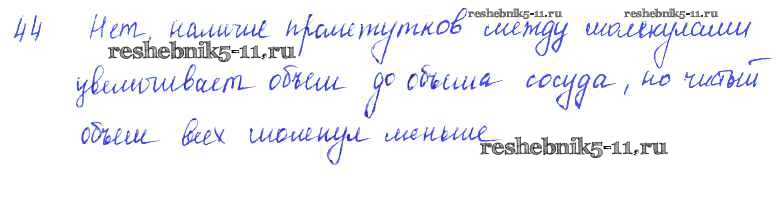 reshebnik5-11.ru reshebnik5-11.ru
44 Нет, наличие промежутков между молекулами
reshebnik5-11.ru
увеличивает объем до объема сосуда, но чистый
объем всех молекул меньше
reshebnik5-11.ru